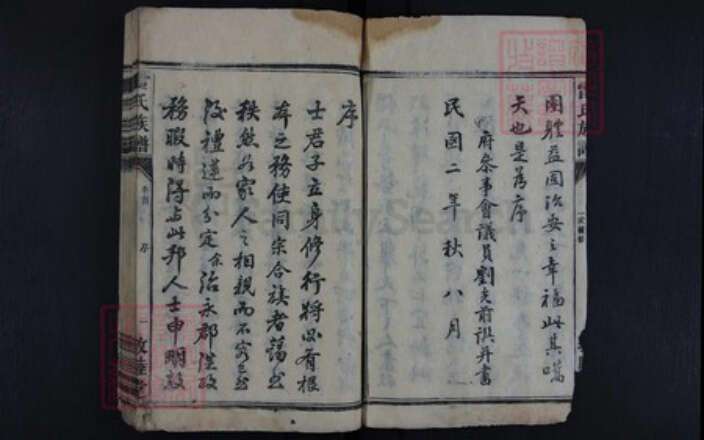 團體益固治安之幸福此其嚆
矢也是為序
府參事會議員劉 前 并書
民國二年秋八月
序
士君子立身修行將必有根
本之務使同宗合族者藹然
秩然如家人之相親而不容
沒禮遂而分定余治永郡從政
務暇時得與此邦人士申明
氏族譜
卷首
序
一
敦睦堂
FamilySearch